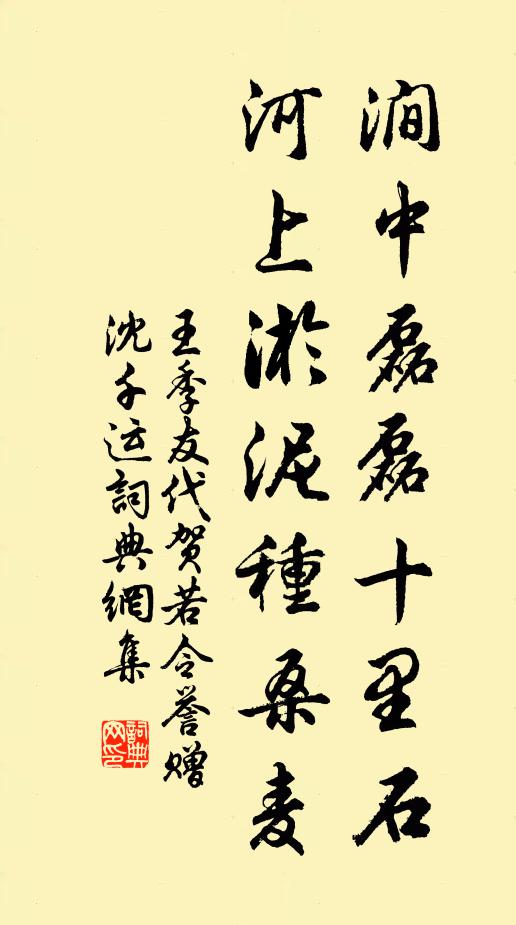 澗中磊磊十里石
河上淤泥種桑麦
王季友代贺若令誉赠
沈千运詞典網集
詞典
网印